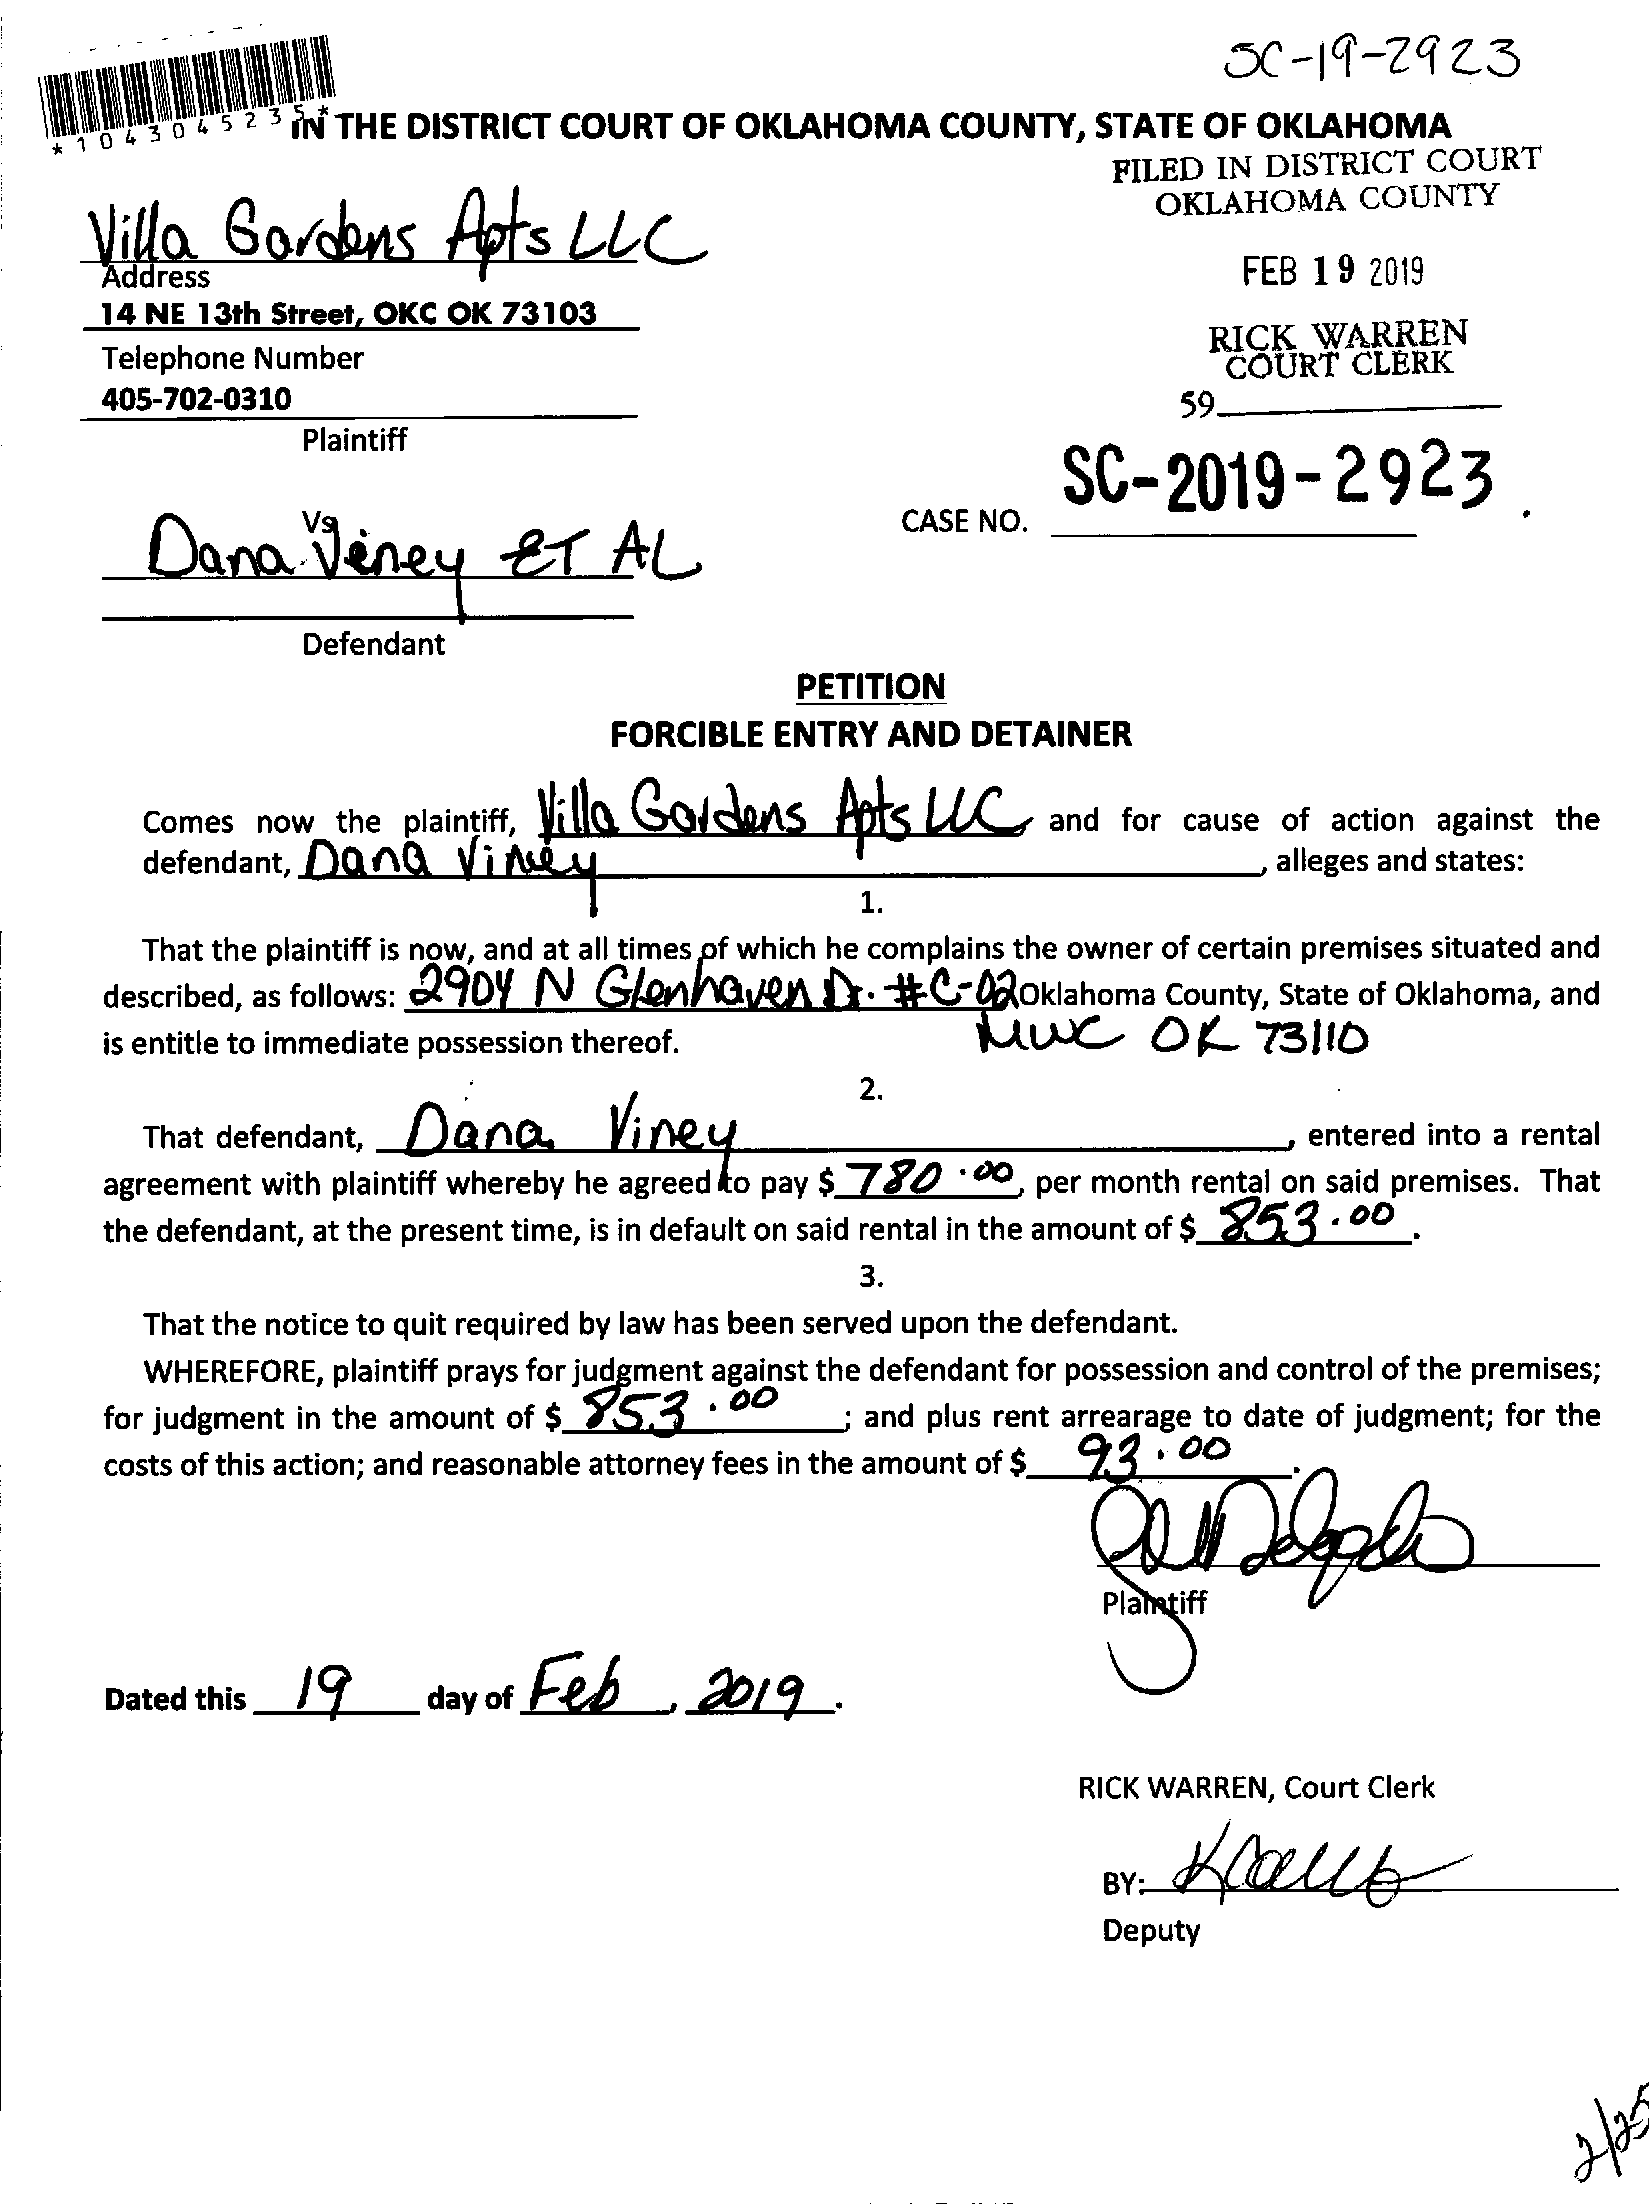 SC-19-2923
*1043045235*
IN THE DISTRICT COURT OF OKLAHOMA COUNTY, STATE OF OKLAHOMA
FILED IN DISTRICT COURT
OKLAHOMA COUNTY
Villa Gardens Apts LLC
Address
FEB 19 2019
14 NE 13th Street, OKC OK 73103
RICK WARREN
COURT CLERK
Telephone Number
405-702-0310
59
Plaintiff
SC-2019-2923
CASE NO. .
Vs
Dana Viney ET AL
Defendant
PETITION
FORCIBLE ENTRY AND DETAINER
Comes now the plaintiff, Villa Gardens Apts LLC and for cause of action against the
defendant, Dana Viney, alleges and states:
1.
That the plaintiff is now, and at all times of which he complains the owner of certain premises situated and
described, as follows: 2904 N Glenhaven Dr. #C-02 Oklahoma County, State of Oklahoma, and
is entitle to immediate possession thereof. MWC OK 73110
2.
That defendant, Dana Viney, entered into a rental
agreement with plaintiff whereby he agreed to pay $ 780.00, per month rental on said premises. That
the defendant, at the present time, is in default on said rental in the amount of $ 853.00.
3.
That the notice to quit required by law has been served upon the defendant.
WHEREFORE, plaintiff prays for judgment against the defendant for possession and control of the premises;
for judgment in the amount of $ 853.00; and plus rent arrearage to date of judgment; for the
costs of this action; and reasonable attorney fees in the amount of $ 93.00.
Plaintiff
Dated this 19 day of Feb, 2019.
RICK WARREN, Court Clerk
BY:
Deputy
2/25